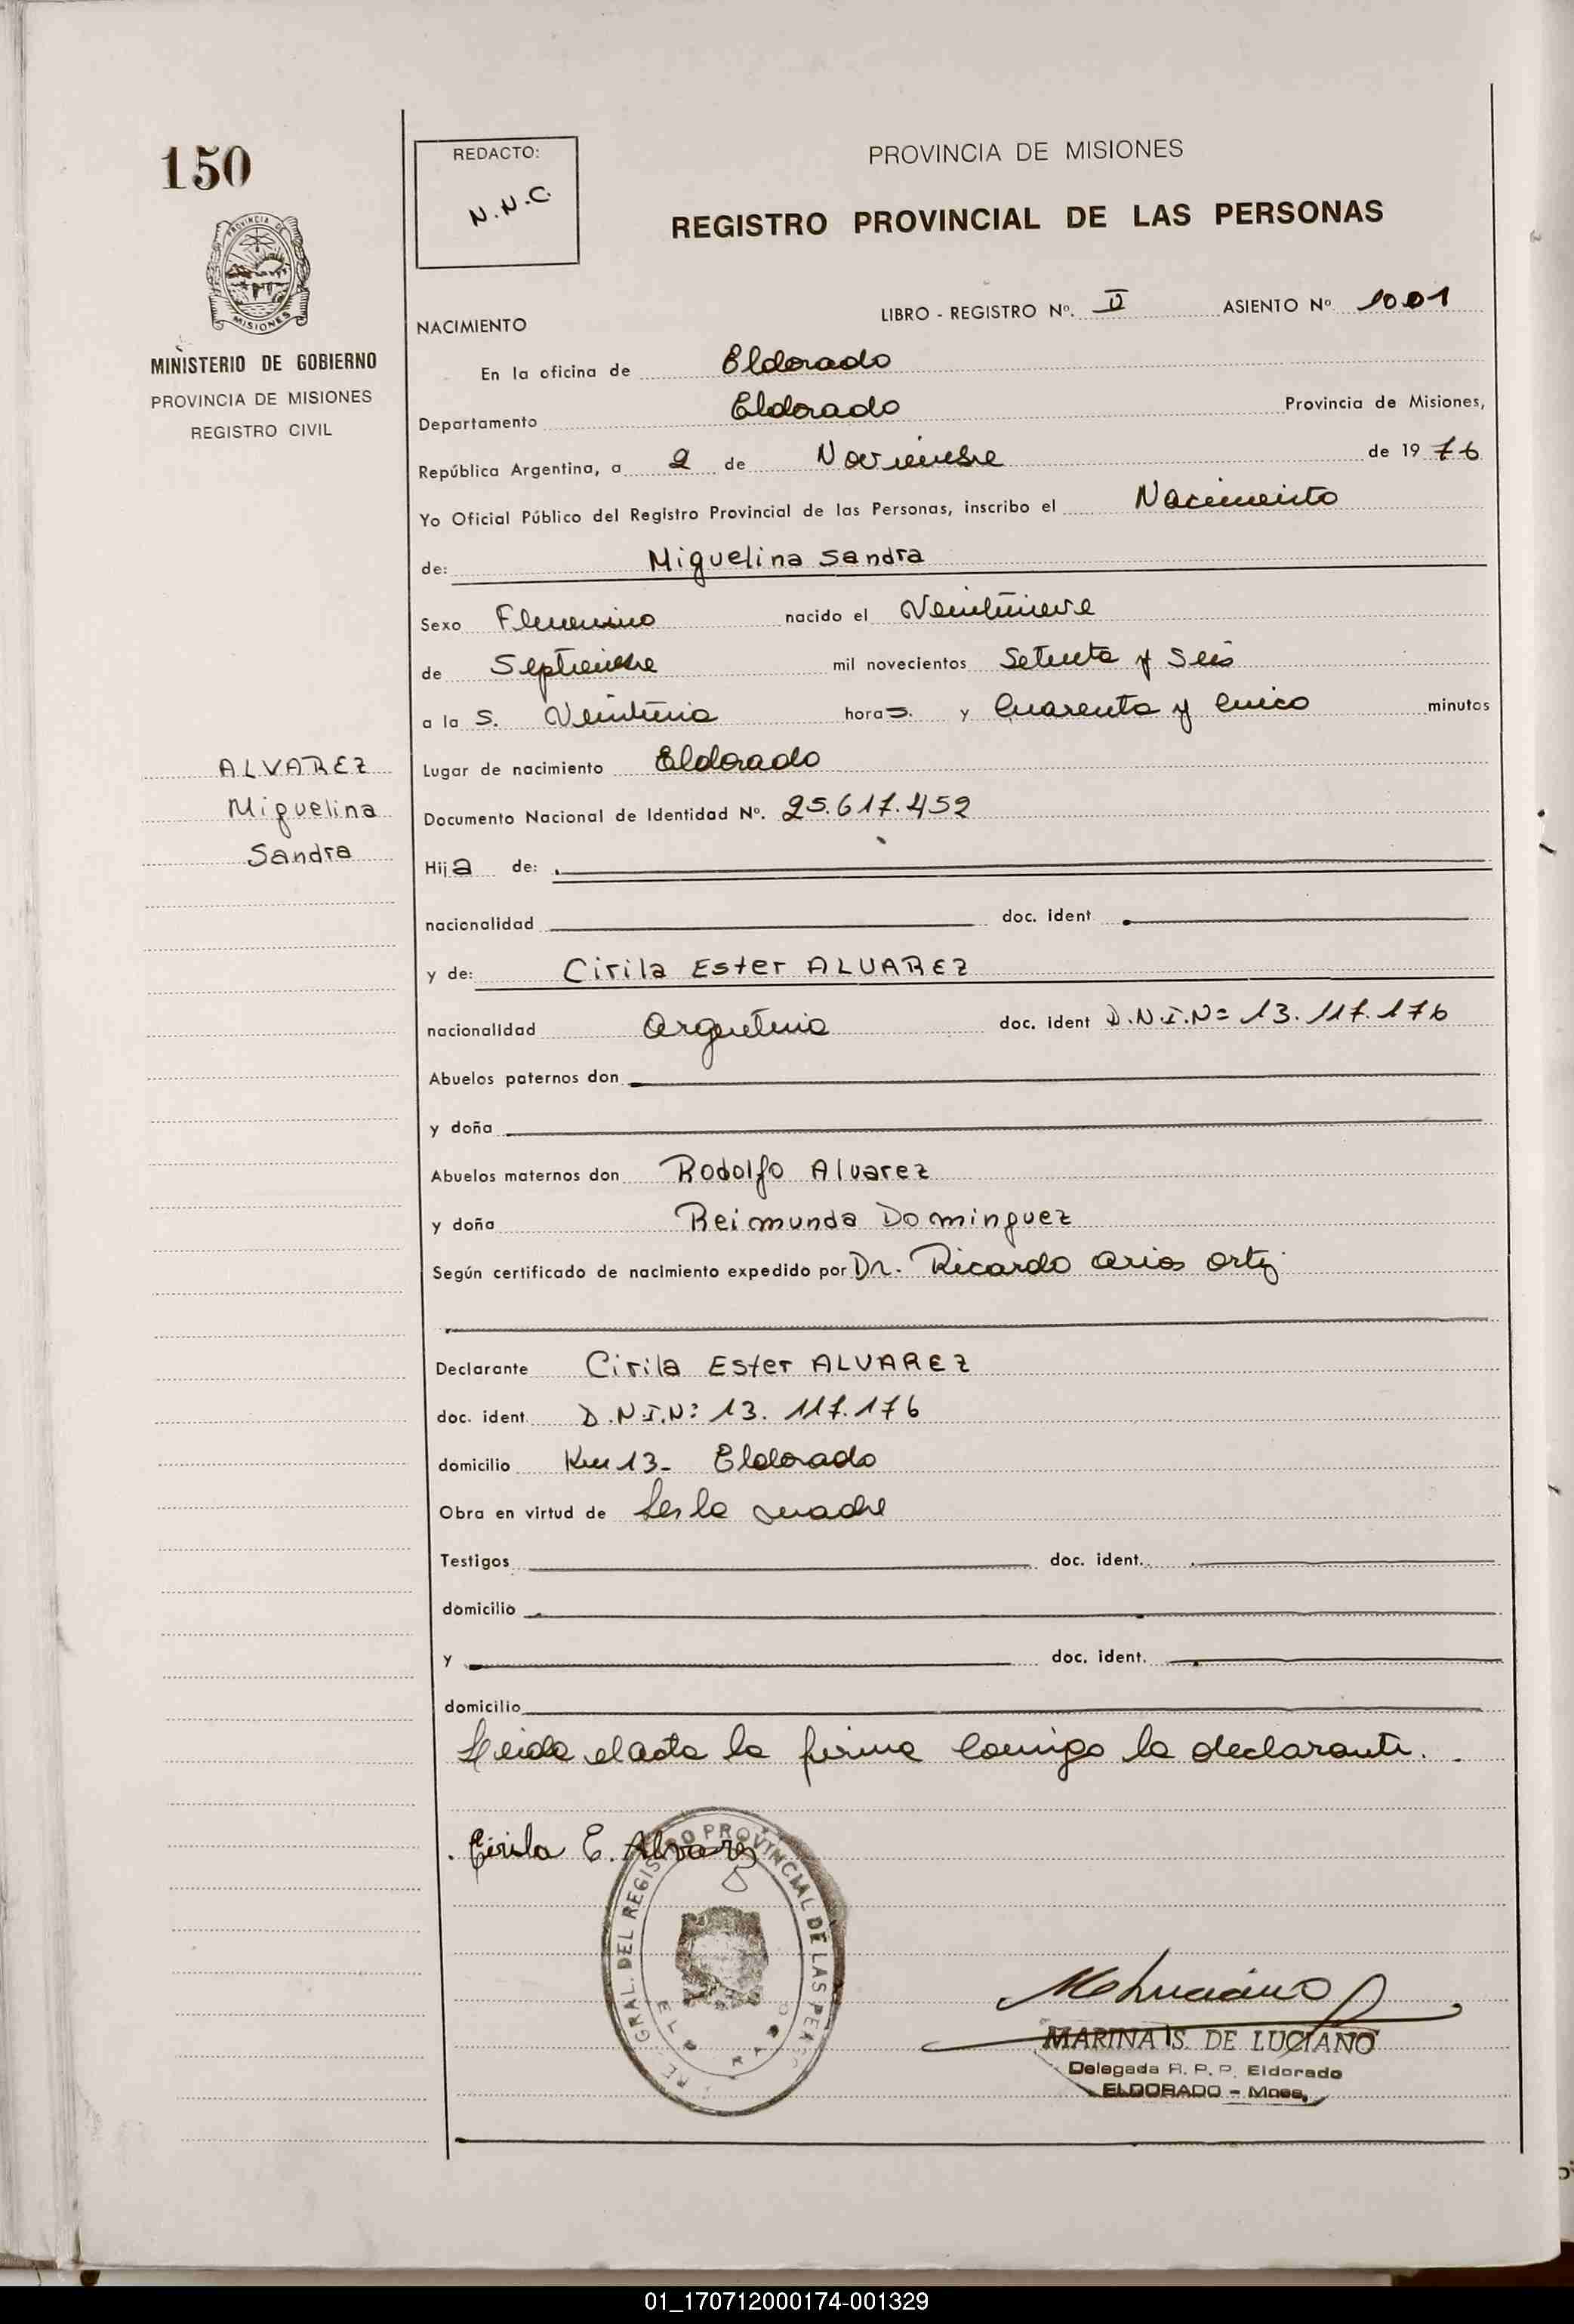 150
REDACTO:
N.N.C.
PROVINCIA DE MISIONES
REGISTRO PROVINCIAL DE LAS PERSONAS
PROVINCIA DE
MISIONES
MINISTERIO DE GOBIERNO
PROVINCIA DE MISIONES
REGISTRO CIVIL
LIBRO - REGISTRO Nº. II ASIENTO Nº 1001
NACIMIENTO
En la oficina de Eldorado
Departamento Eldorado Provincia de Misiones,
República Argentina, a 2 de Noviembre de 1976
Yo Oficial Público del Registro Provincial de las Personas, inscribo el Nacimiento
de: Miguelina Sandra
Sexo Femenino nacido el Veintinueve
de Septiembre mil novecientos Setenta y Seis
a la s. Veintiuna horas. y Cuarenta y Cinco minutos
ALVAREZ
Miguelina
Sandra
Lugar de nacimiento Eldorado
Documento Nacional de Identidad Nº. 25.617.452
Hija de:
nacionalidad doc. ident
y de: Cirila Ester ALVAREZ
nacionalidad Argentina doc. ident D.N.I.Nº 13.117.176
Abuelos paternos don
y doña
Abuelos maternos don Rodolfo Alvarez
y doña Reimunda Dominguez
Según certificado de nacimiento expedido por Dr. Ricardo Arios Ortiz
Declarante Cirila Ester ALVAREZ
doc. ident. D.N.I.Nº 13.117.176
domicilio Km 13- Eldorado
Obra en virtud de Ser la madre
Testigos doc. ident.
domicilio
y doc. ident.
domicilio
Leida el acta la firma Conmigo la declarante.
Cirila E. Alvarez
GRAL. DEL REGISTRO PROVINCIAL DE LAS PERSO
ELDORADO
MARINA S. DE LUCIANO
Delegada R. P. P. Eldorado
ELDORADO - Mnes,
01_170712000174-001329